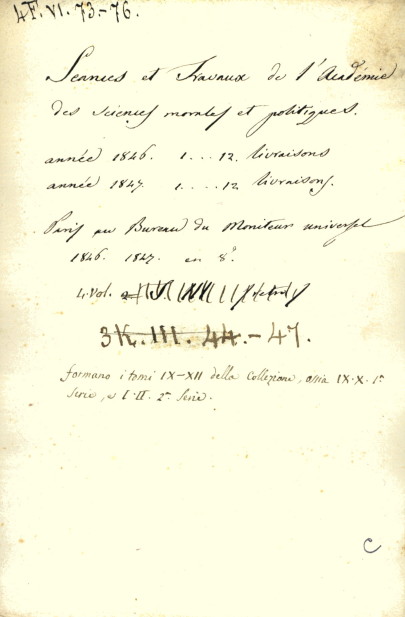 4F.VI.73-76.
Séances et Travaux de l'Académie
des sciences morales et politiques.
année 1846. 1....12. livraisons
année 1847. 1....12 livraisons.
Paris au Bureau du Moniteur universel
1846. 1847. en 8.º
4. vol.
3K.III.44.-47.
formano i tomi IX-XII della Collezione, ossia IX.X.1ª
Serie, e I.II.2ª Serie.
C